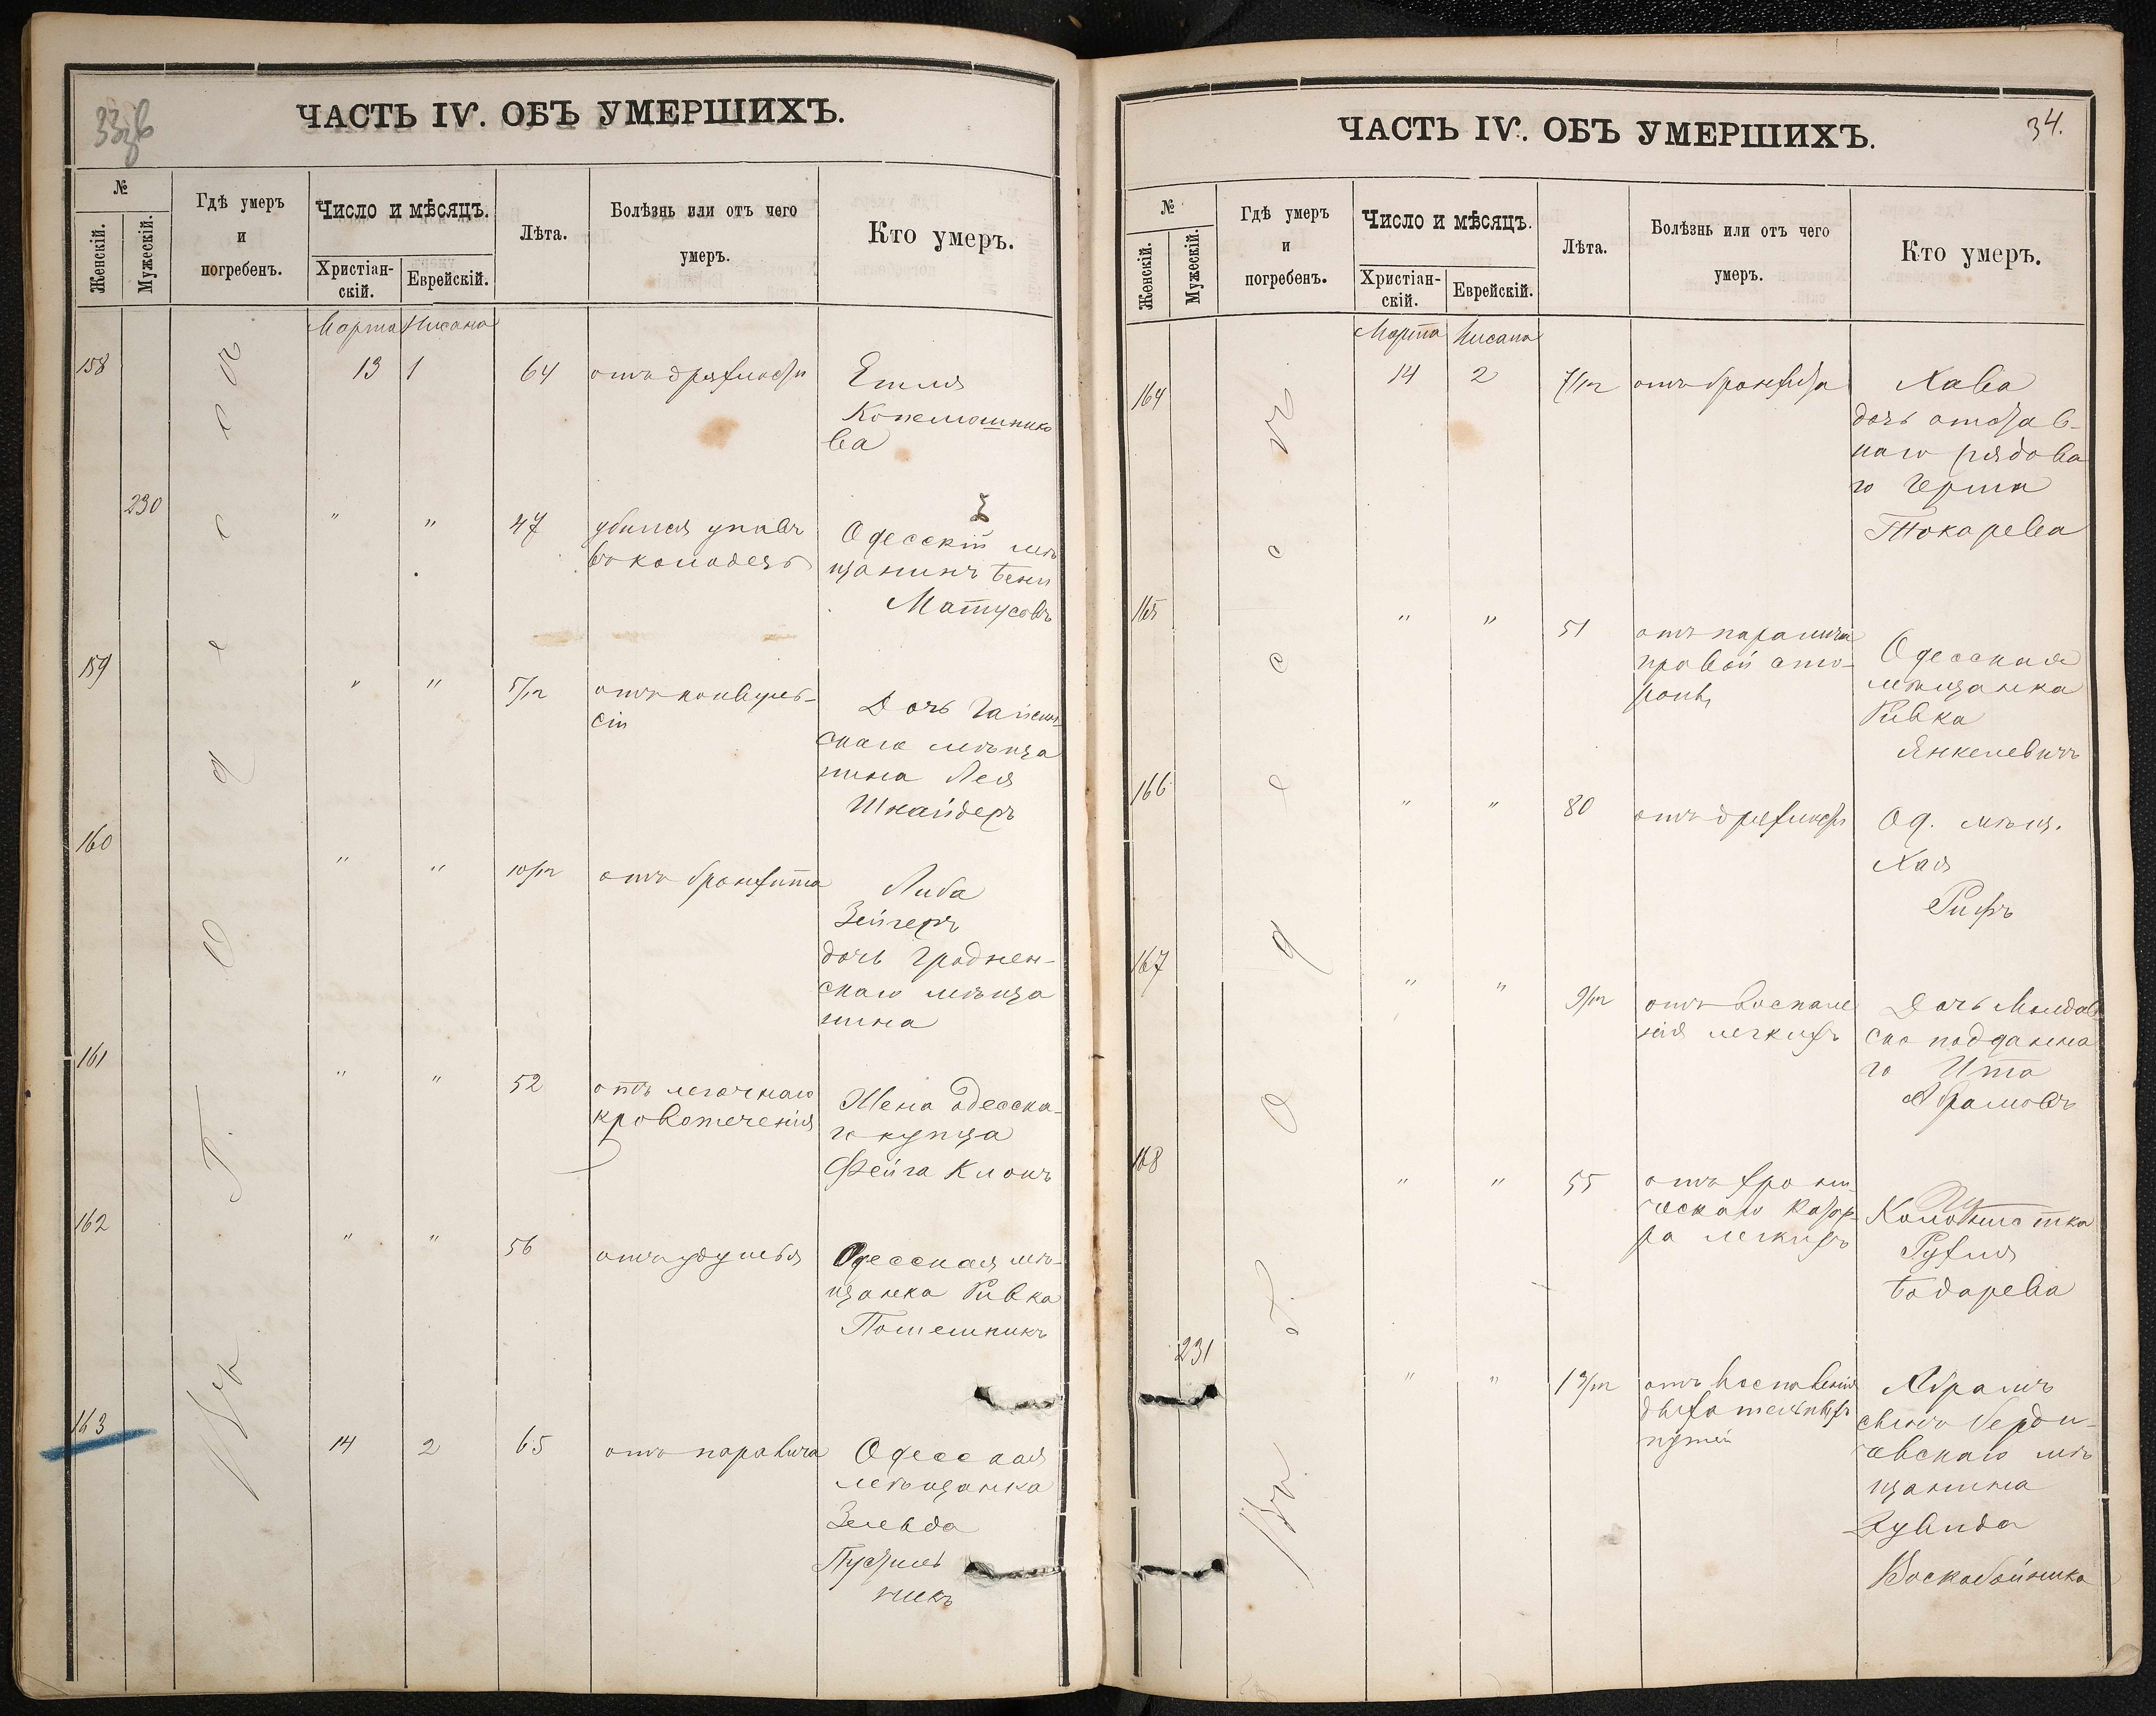 33 об
ЧАСТЬ IV. ОБЪ УМЕРШИХЪ.
№
Женскій.
Мужескій.
Гдѣ умеръ
и
погребенъ.
Число и мѣсяцъ.
Христіан-
скій.
Еврейскій.
Лѣта.
Болѣзнь или отъ чего
умеръ.
Кто умеръ.
Въ Г. Одессѣ
Марта Нисана
158 13 1 64 отъ дряхлости
Етля
ва
230 " " 47 убился упавъ
въ колодезь
Одесскій мѣ
щанинъ Бени
Матусовъ
159 " " 5/м отъ конвуль-
сіи
Дочь
скаго мѣща
нина Лея
Шнайдеръ
160 " " 10/м отъ бронхита
Либа
Зейгеръ
дочь Гроднен-
скаго мѣща
нина
161 " " 52 отъ легочнаго
кровотеченія
Жена Одесска-
го купца
Фейга
162 " " 56 отъ удушья
Одесская мѣ-
щанка Ривка
163 14 2 65 отъ паралича
Одесская
мѣщанка
Зельда
Пузрыль
никъ
34.
ЧАСТЬ IV. ОБЪ УМЕРШИХЪ.
№
Женскій.
Мужескій.
Гдѣ умеръ
и
погребенъ.
Число и мѣсяцъ.
Христіан-
скій.
Еврейскій.
Лѣта.
Болѣзнь или отъ чего
умеръ.
Кто умеръ.
Въ Г. Одессѣ
Марта Нисана
164 14 2 7/м отъ бронхита
Хава
дочь отстав-
наго рядова
го Герша
Токарева
165 " " 51 отъ паралича
правой сто-
роны
Одесская
мѣщанка
Ривка
Янкелевичъ
166 " " 80 отъ дряхлости
Од. мѣщ.
Хая
Рифъ
167 " " 9/м отъ воспале
нія легкихъ
Дочь Молдав
ско подданна
го Ита
Абрамовъ
168 " " 55 отъ хрони
ческаго катар-
ра легкихъ
Колонистка
Рухля
Бодарева
231 " " 1 9/м отъ воспаленія
дыхательныхъ
путей
Абрамъ
сынъ Берди-
чевскаго мѣ
щанина
Дувида
Воскобойника